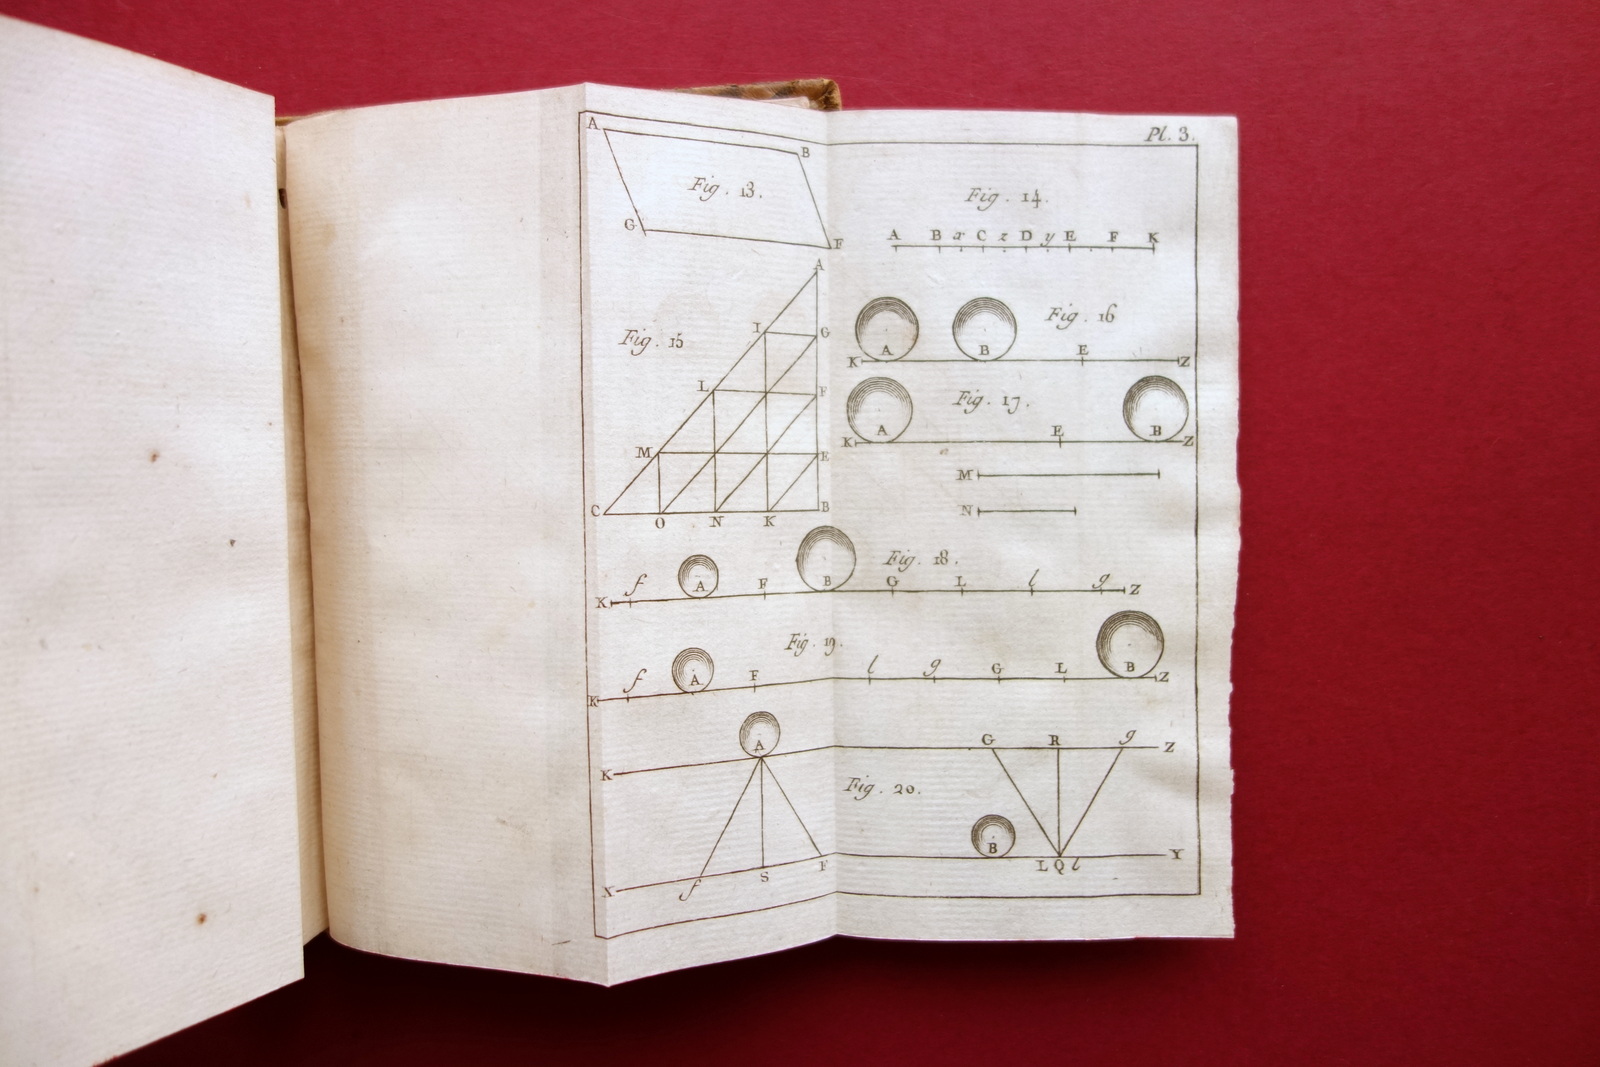 Pl. 3.
A
B
Fig. 13.
G
F
Fig. 14.
A B x C z D y E F K
A
I G
Fig. 15
L F
M E
C O N K B
Fig. 16
K A B E Z
Fig. 17.
K A E B Z
M
N
Fig. 18.
K f A F B G L l g Z
Fig. 19.
K f A F l g G L B Z
A G R g Z
K
Fig. 20.
B
X f S F L Q l Y